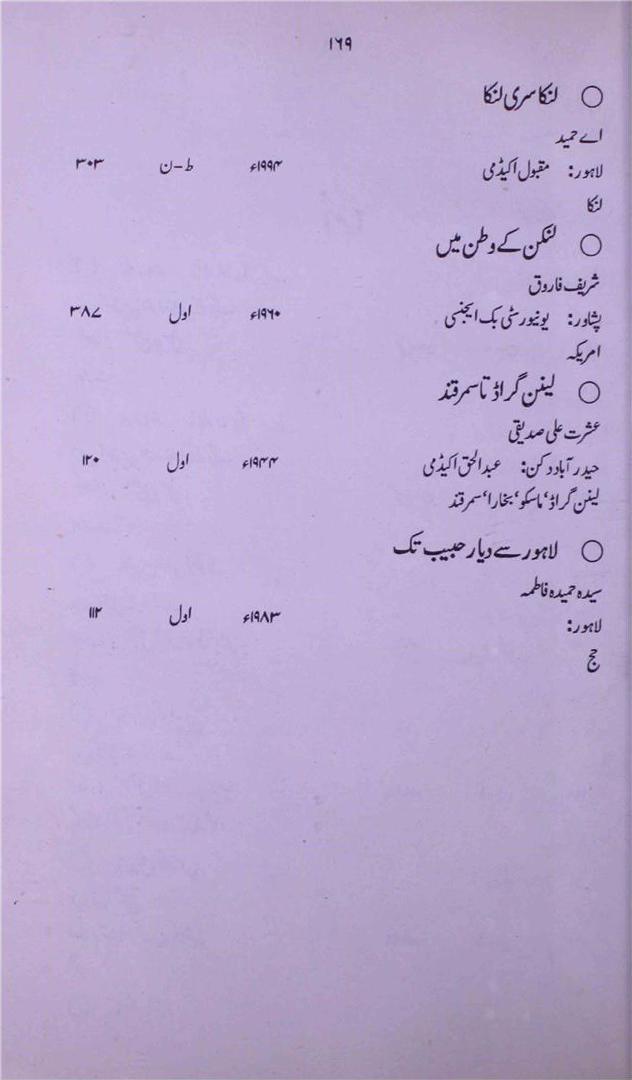 ۱۶۹
○ لنکا سری لنکا
اے حمید
لاہور: مقبول اکیڈمی ۱۹۹۴ء ط-ن ۳۰۳
لنکا
○ لنکن کے وطن میں
شریف فاروق
پشاور: یونیورسٹی بک ایجنسی ۱۹۶۰ء اول ۳۸۷
امریکہ
○ لینن گراڈ تا سمرقند
عشرت علی صدیقی
حیدر آباد دکن: عبدالحق اکیڈمی ۱۹۴۴ء اول ۱۲۰
لینن گراڈ‘ ماسکو‘ بخارا‘ سمرقند
○ لاہور سے دیار حبیب تک
سیدہ حمیدہ فاطمہ
لاہور: ۱۹۸۳ء اول ۱۱۲
حج